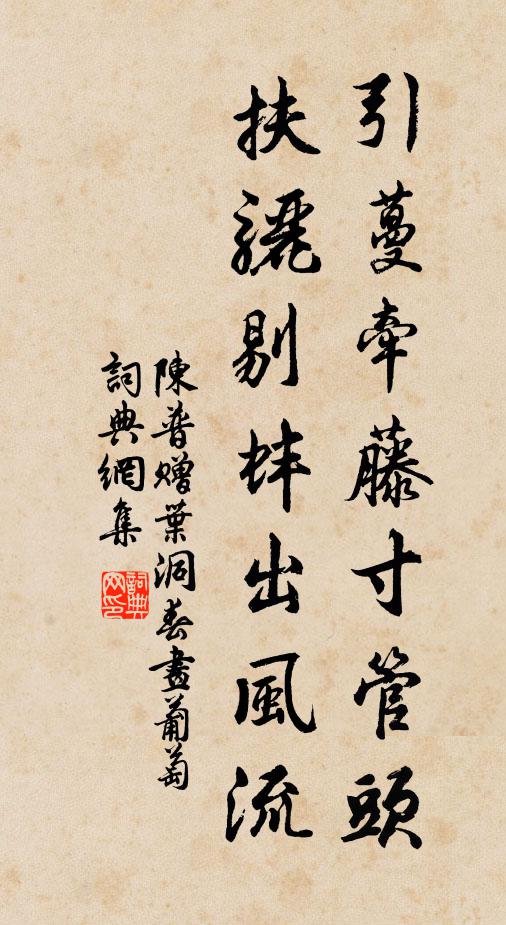 引蔓牽藤寸管頭
扶驪剔蚌出風流
陳普贈葉洞春畫葡萄
詞典網集
詞典网印